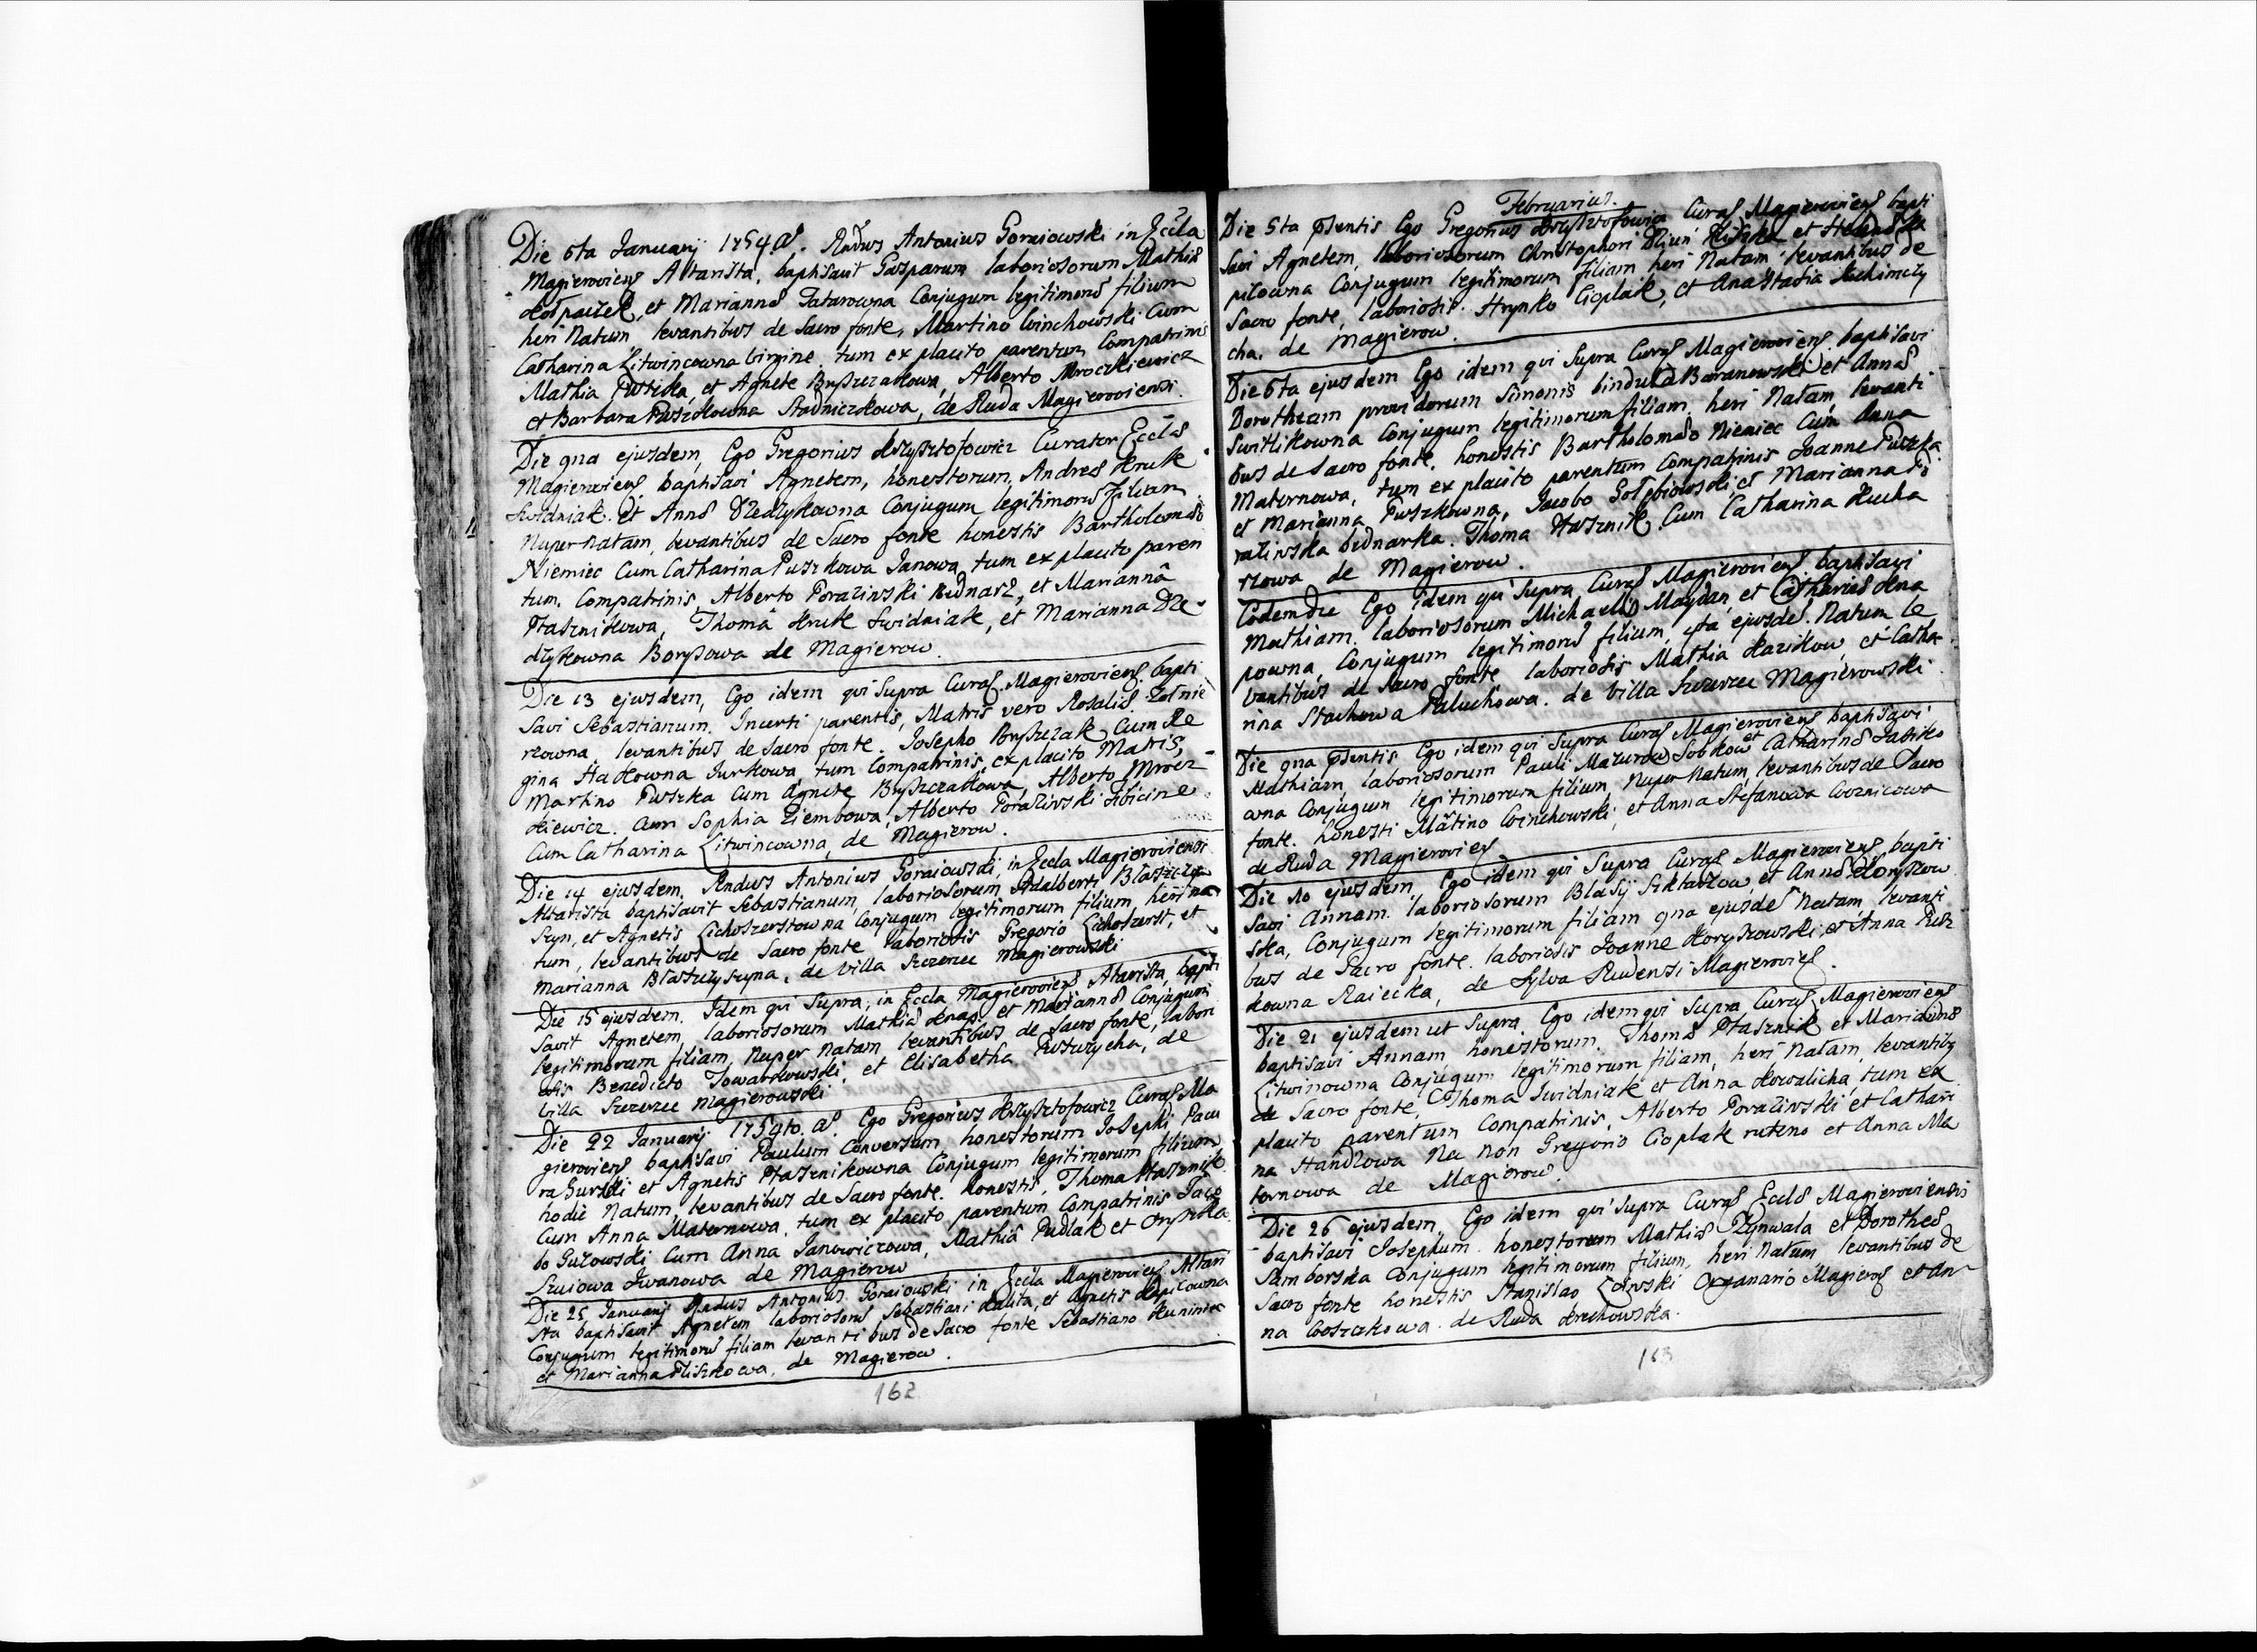 Die 6ta Januarij 1754 ao. Rndus Antonius Goraiowski in Eccla
Magieroviens Altarista, baptisavit Gasparum laboriosorum Mathiæ
et Mariannæ Tatarowna Conjugum legitimorũ filium
heri Natum, levantibus de Sacro fonte, Martino Winchowski Cum
Catharina Litwincowna Virgine, tum ex placito parentum Compatrinis
Mathia et Agnete Bryszczakowa, Alberto Mroczkiewicz
et Barbara Puszkowna Stadniczkowa, de Ruda Magierowiensi.
Die 9na ejusdem, Ego Gregorius Krzysztofowicz Curator Ecclæ
Magieroviens baptisavi Agnetem, honestorum, Andreæ Kruk
Swidniak et Annæ Dzedzykowna Conjugum legitimorũ filiam
Nuper Natam, levantibus de Sacro fonte honestis Bartholomæo
Niemiec Cum Catharina Puszkowa Janowa, tum ex placito paren
tum. Compatrinis, Alberto Poraziński Bednarz, et Mariannâ
Ptasznikowa, Thomâ Kruk Swidniak, et Marianna Dze-
dzykowna Borysowa de Magierow.
Die 13 ejusdem, Ego idem qui Supra Curat Magieroviens bapti
savi Sebastianum. Incerti parentis, Matris vero Rosaliæ Żołnie
rzowna levantibus de Sacro fonte. Josepho Bryszczak Cum Re
gina Hakowna Jurkowa, tum Compatrinis, ex placito Matris,
Martino Puszka Cum Agnete Bryszczakowa, Alberto Mrocz-
kiewicz. Cum Sophia Ziembowa, Alberto Poraziński Tibicine
Cum Catharina Litwincowna, de Magierow.
Die 14 ejusdem, Rndus Antonius Goraiowski, in Eccla Magierowiensi
Altarista baptisavit Sebastianum, laboriosorum Adalberti Błaszczy
szyn, et Agnetis Lichoszerstowna Conjugum legitimorum filium, heri na
tum, levantibus de Sacro fonte laboriosis Gregorio Lichoszerst, et
Marianna Błaszczyszyna, de Villa Szczerzec Magierowski
Die 15 ejusdem. Idem qui Supra, in Eccla Magieroviens Altarista, bapti
savit Agnetem, laboriosorum Mathiæ Knap et Mariannæ Conjugum
legitimorum filiam, Nuper Natam levantibus de Sacro fonte, labori
osis Benedicto Towarkowski, et Elisabetha de
Villa Szczerzec Magierowski
Die 22 Januarij 1754to. ao. Ego Gregorius Krzysztofowicz Curat Ma
gieroviens baptisavi Paulum Conversum honestorum Josephi Paw
ra Gurski et Agnetis Ptasznikowna Conjugum legitimorum filium
hodie Natum, levantibus de Sacro fonte. honestis, Thoma Ptasznik
Cum Anna Maternowa, tum ex placito parentum Compatrinis Jaco
bo Guzowski Cum Anna Janowiczowa, Mathiâ Pudlak et Oryszka
Szuiowa Iwanowa de Magierow
Die 25 Januarij Rndus Antonius Goraiowski in Eccla Magieroviens Altari
sta baptisavit Agnetem laboriosorũ Sebastiani Kaluta, et Agnetis
Conjugum legitimorũ filiam levantibus de Sacro fonte Sebastiano Kuniniec
et Marianna Fliszkowa, de Magierow.
162
Februarius.
Die 5ta psentis Ego Gregorius Krzysztofowicz Curat Magieroviens bapti
savi Agnetem, laboriosorum Christophori et
piłowna Conjugum legitimorum filiam heri Natam levantibus de
Sacro fonte, laboriosis. Hrynko Cioplak, et Anastasia Jachimczy
cha. de Magierow.
Die 6ta ejusdem Ego idem qui Supra Curat Magieroviens baptisavi
Dorotheam providorum Simonis Bindula Baranowski et Annæ
Switlikowna Conjugum legitimorum filiam, heri Natam, levanti
bus de Sacro fonte. honestis Bartholomæo Niemiec Cum Anna
Maternowa, tum ex placito parentum Compatrinis Joanne Puszka
et Marianna Puszkowna, Jacobo Gołębiowski, et Marianna Po
razinska bednarka. Thoma Ptasznik Cum Catharina Kucha
rzowa de Magierow.
Eodem die Ego idem qui Supra Curat Magieroviens baptisavi
Mathiam. laboriosorum Michaelis Maydan, et Catharinæ Kna
powna, Conjugum legitimorũ filium, 4ta ejusdẽ. Natum le
vantibus de Sacro fonte laboriosis Mathia Kazikow, et Catha-
rinna Stachowa Paluchowa. de Villa Szczerzec Magierowski.
Die 9na psentis Ego idem qui Supra Curat Magieroviens baptisavi
Mathiam, laboriosorum Pauli Mazurow Sobkow et Catharinæ Jasiko
wna Conjugum legitimorum filium, Nuper Natum, levantibus de Sacro
fonte. honesti Mãtino Winchowski, et Anna Stefanowa Woznicowa
de Ruda Magierovies
Die 10 ejusdem, Ego idem qui Supra Curat Magieroviens, bapti
savi Annam. laboriosorum Blasij Szklarzow, et Annæ Koryszow
ska, Conjugum legitimorum filiam 9na ejusdẽ Natam, levanti
bus de Sacro fonte. laboriosis Joanne Koryszowski, et Anna Pusz
kowna Raiecka, de Sylva Rudensi Magierovies.
Die 21 ejusdem ut Supra. Ego idem qui Supra Curat Magieroviens
baptisavi Annam honestorum. Thomæ Ptasznik et Mariannæ
Litwinowna Conjugum legitimorum filiam, heri Natam, levantibȝ
de Sacro fonte, Thoma Swidniak et Anna Kowalicha, tum ex
placito parentum Compatrinis, Alberto Poraziński et Cathari
na Handlowa Nec non Gregorio Cioplak ruteno et Anna Ma
ternowa de Magierow.
Die 26 ejusdem. Ego idem qui Supra Curat Ecclæ Magieroviensis
baptisavi Josephum. honestorum Mathiæ Rzynwala et Dorotheæ
Samborska Conjugum legitimorum filium, heri Natum levantibus de
Sacro fonte honestis Stanislao Organario Magieroŝ et An-
na Woszczkowa de Ruda Kruchowska.
163